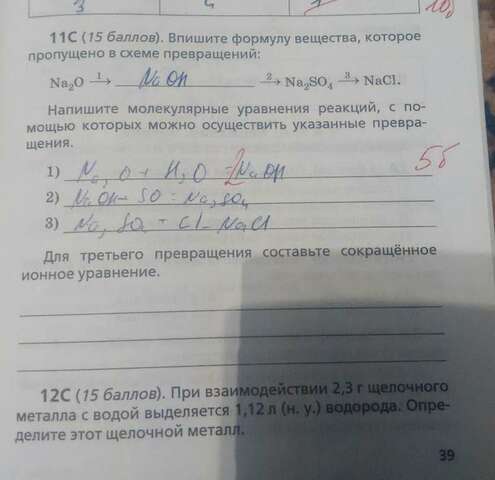 3 4 7 10,
11С (15 баллов). Впишите формулу вещества, которое
пропущено в схеме превращений:
Na₂O →¹ NaOH →² Na₂SO₄ →³ NaCl.
Напишите молекулярные уравнения реакций, с по-
мощью которых можно осуществить указанные превра-
щения.
1) Na₂O + H₂O = 2NaOH 5б
2) NaOH - SO = Na₂SO₄
3) Na₂SO₄ - Cl - NaCl
Для третьего превращения составьте сокращённое
ионное уравнение.
12С (15 баллов). При взаимодействии 2,3 г щелочного
металла с водой выделяется 1,12 л (н. у.) водорода. Опре-
делите этот щелочной металл.
39